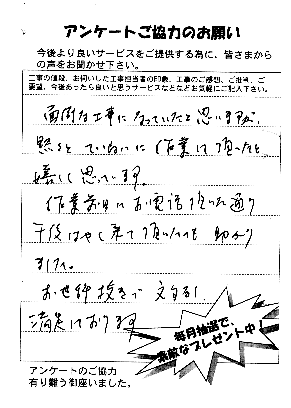 アンケートご協力のお願い
今後より良いサービスをご提供する為に、皆さまから
の声をお聞かせ下さい。
工事の値段、お伺いした工事担当者の印象、工事のご感想、ご批評、ご
要望、今後あったら良いと思うサービスなどなどお気軽にご記入下さい。
面倒な工事になっていたと思いますが、
黙々とていねいに作業して頂いたと
嬉しく思っています。
作業前日にお電話頂いた通り
午後はやく来て頂いたのも助かり
ました。
お世辞抜きで文句なし
満足しております
毎月抽選で、
素敵なプレゼント中!
アンケートのご協力
有り難う御座いました。